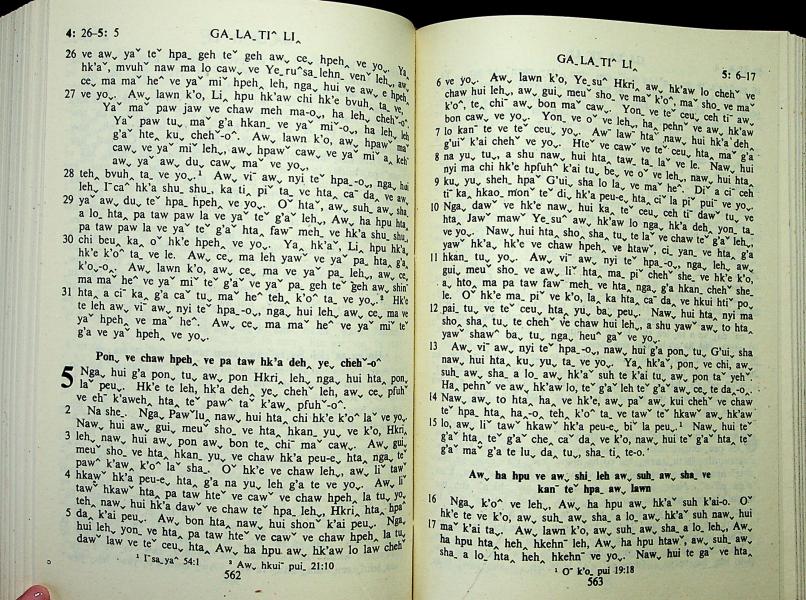 4: 26–5: 5 GA‸ LA‸ TIˆ LI‸
26 ve aw‸ yaˇ teˇ hpa‸ geh teˇ geh aw‸ ce‸ hpehˬ ve yoˬ. Ya‸
hk'aˇ, mvuhˇ naw ma lo caw‸ ve Ye‸ruˆsa‸lehn‸ venˇ lehˬ, aw
ce‸ ma maˇ heˆ ve yaˇ miˇ hpeh leh, nga‸ hui ve aw‸ e hpeh‸
27 ve yoˬ. Aw‸ lawn k'o, Li‸ hpu hk'aw chi hk'e bvuh‸ ta‸ ve,
Yaˇ ma paw jaw ve chaw meh ma-oˬ, ha leh‸ chehˇ-oˆ.
Yaˇ paw tu‸ maˇ g'a hkan‸ ve yaˇ miˇ-oˬ, ha leh‸ leh
g'aˇ hte‸ ku‸ chehˇ-oˆ. Aw‸ lawn k'o, aw‸ hpaw‸ maˇ
caw‸ ve yaˇ miˇ lehˬ, aw‸ hpawˇ caw‸ ve yaˇ miˇ a‸ kehˇ
aw‸ yaˇ aw‸ du‸ caw‸ maˇ ve yoˬ.
28 teh‸ bvuh‸ ta‸ ve yoˬ.¹ Aw‸ viˉ aw‸ nyi teˇ hpa‸-oˬ, nga‸ hui
leh‸ Iˉcaˆ hk'a shu‸ shu‸, ka ti‸ piˇ ta‸ ve hta‸ caˉ da‸ ve aw‸
29 yaˇ aw‸ du‸ teˇ hpa‸ hpehˬ ve yoˬ. Oˇ htaˇ, aw‸ suh‸ aw‸ sha‸
a lo‸ hta‸ pa taw paw la ve yaˇ teˇ g'aˇ lehˬ, Aw‸ ha hpu hta‸
pa taw paw la ve yaˇ teˇ g'aˇ hta‸ fawˇ mehˬ ve hk'a shu‸ shu‸,
30 chi beu‸ ka‸ oˇ hk'e hpehˬ ve yoˬ. Ya‸ hk'aˇ, Li‸ hpu hk'a‸
hk'e k'oˆ ta‸ ve le. Aw‸ ce‸ ma leh yawˇ ve yaˇ pa‸ hta‸ g'a‸
k'o‸-o‸. Aw‸ lawn k'o, aw‸ ce‸ ma ve yaˇ pa‸ lehˬ, aw‸ ce‸
ma maˇ heˆ ve yaˇ miˇ teˇ g'aˇ ve yaˇ pa geh teˇ geh aw‸ shinˉ
31 hta‸ a ciˇ ka‸ g'a ca‸ tu‸ maˇ heˆ teh‸ k'oˆ ta‸ ve yoˬ.² Hk'e
te leh aw‸ viˉ aw‸ nyi teˇ hpa‸-oˬ, nga‸ hui leh‸ aw‸ ce‸ ma ve
yaˇ hpehˬ ve maˇ heˆ. Aw‸ ce‸ ma maˇ heˆ ve yaˇ miˇ teˇ
g'a ve yaˇ hpehˬ ve yoˬ.
Ponˬ ve chaw hpehˬ ve pa taw hk'a dehˬ ye‸ chehˇ-oˆ
5 Nga‸ hui g'a ponˬ tu‸, aw‸ pon Hkri‸ lehˬ, nga‸ hui hta‸ ponˬ
laˇ peuˬ. Hk'e te leh, hk'a dehˬ ye‸ chehˇ leh, aw‸ ce‸ pfuhˇ
ve ehˉ k'aweh‸ hta‸ teˇ pawˆ taˇ k'aw‸ pfuhˇ-oˆ.
2 Na she‸. Nga‸ Pawˇlu‸ naw‸ hui hta‸ chi hk'e k'oˆ laˇ ve yoˬ.
Naw‸ hui aw‸ gui‸ meuˇ sho‸ ve hta‸ hkan‸ yu‸ ve k'o, Hkri‸
3 leh‸ naw‸ hui aw‸ pon aw‸ bon te‸ chiˉ maˇ caw‸. Aw‸ gui‸
meuˇ sho‸ ve hta‸ hkan‸ yu‸ ve chaw hk'a peu-e‸ hta‸ nga‸ teˇ
pawˆ k'aw‸ k'oˆ laˇ sha‸. Oˇ hk'e ve chaw lehˬ, aw‸ liˇ tawˇ
4 hkawˇ hk'a peu-e‸ hta‸ g'a na yu‸ leh g'a te ve yoˬ. Aw‸ liˇ
tawˇ hkawˇ hta‸ pa taw hteˇ ve cawˇ ve chaw hpeh‸ la tu‸ yo‸
teh‸ naw‸ hui hk'a dawˇ ve chaw teˇ hpa‸ leh‸, Hkri‸ hta‸ hpaˆ
5 da‸ k'ai peuˬ. Aw‸ bon hta‸ naw‸ hui shonˇ k'ai peuˬ. Nga‸
hui leh‸ yon‸ ve hta‸ pa taw hteˇ ve cawˇ ve chaw hpeh‸ la tu‸
dawˇ law ve teˇ ceu‸ hta‸ Aw‸ ha hpu‸ aw‸ hk'aw lo law chehˇ
¹ Iˉsa‸yaˆ 54:1 ² Aw‸ hkuiˉ pui‸ 21:10
562
GA‸ LA‸ TIˆ LI‸ 5: 6–17
6 ve yoˬ. Aw‸ lawn k'o, Ye‸suˆ Hkri‸ aw‸ hk'aw lo chehˇ ve
chaw hui leh‸, aw‸ gui‸ meuˇ sho‸ ve maˇ k'oˆ, maˇ sho‸ ve maˇ
k'oˆ, te‸ chiˉ aw‸ bon maˇ caw‸. Yon‸ ve teˇ ceu‸ ceh tiˉ aw‸
bon caw‸ ve yoˬ. Yon‸ ve oˇ ve leh‸, ha‸ pehnˇ ve aw‸ hk'aw
7 lo kanˇ te ve teˇ ceu‸ yoˬ. Awˇ lawˇ htaˇ naw‸ hui hk'a dehˬ
g'uiˇ k'ai chehˇ ve yoˬ. Hteˇ ve cawˇ ve teˇ ceu‸ hta‸ maˇ g'a
8 na yu‸ tu‸, a shu naw‸ hui hta‸ taw‸ ta‸ laˇ ve le. Naw‸ hui
nyi ma chi hk'e hpfuhˆ k'ai tu‸ be‸ ve oˇ ve leh‸, naw‸ hui hta‸
9 ku‸ yu‸ sheh‸ hpaˇ G'ui‸ sha lo la‸ ve maˇ heˆ. Diˇ a ciˉ ceh
tiˉ ka‸ hkao‸ monˉ teˇ di‸ hk'a peu-e‸ hta‸ ciˇ la piˇ puiˉ ve yoˬ.
10 Nga‸ dawˇ ve hk'e naw‸ hui ka‸ teˇ ceu‸ ceh tiˉ dawˇ tu‸ ve
hta‸ Jawˇ mawˇ Ye‸suˆ aw‸ hk'aw lo nga‸ hk'a deh‸ yon‸ ta‸
ve yoˬ. Naw‸ hui hta‸ sho‸ sha‸ tu‸ te laˇ ve chaw teˇ g'aˇ lehˬ,
yawˇ hk'a‸ hk'e ve chaw hpeh‸ ve htawˇ, ci‸ yan‸ ve hta‸ g'a
11 hkan‸ tu‸ yoˬ. Aw‸ viˉ aw‸ nyi teˇ hpa‸-oˬ, nga‸ leh‸ aw‸
gui‸ meuˇ sho‸ ve aw‸ liˇ hta‸ ma‸ piˇ chehˇ she‸ ve hk'e k'o‸
a‸ hto‸ ma pa taw fawˇ mehˬ ve hta‸ nga‸ g'a hkan‸ chehˇ she‸
le. Oˇ hk'e ma‸ piˇ ve k'o, la‸ ka hta‸ caˉ da‸ ve hkui htiˇ po‸
12 pai‸ tu‸ ve teˇ ceu‸ hta‸ yu‸ ba‸ peuˬ. Naw‸ hui hta‸ nyi ma
sho‸ sha‸ tu‸ te chehˇ ve chaw hui lehˬ, a shu yawˇ aw‸ to hta‸
yawˇ shawˆ ba‸ tu‸, nga‸ heuˇ gaˇ ve yoˬ.
13 Aw‸ viˉ aw‸ nyi teˇ hpa‸-oˬ, naw‸ hui g'a pon‸ tu‸, G'ui‸ sha
naw‸ hui hta‸ ku‸ yu‸ ta‸ ve yoˬ. Ya‸ hk'aˇ, pon‸ ve chi, aw‸
suh‸ aw‸ sha‸ a lo‸ aw‸ hk'aˇ suh te k'ai tu‸, aw‸ pon taˇ yehˇ.
Ha‸ pehnˇ ve aw‸ hk'aw lo, teˇ g'aˇ leh teˇ g'aˇ aw‸ ce‸ te da‸-oˬ.
14 Naw‸ aw‸ to hta‸ ha‸ ve hk'e, aw‸ paˇ aw‸ kui chehˇ ve chaw
teˇ hpa‸ hta‸ ha‸-oˬ teh‸ k'oˆ ta‸ ve tawˇ teˇ hkawˇ aw‸ hk'aw
15 lo, aw‸ liˇ tawˇ hkawˇ hk'a peu-e‸ biˇ la peuˬ.¹ Naw‸ hui teˇ
g'aˇ hta‸ teˇ g'aˇ che‸ caˇ da‸ ve k'o, naw‸ hui teˇ g'aˇ hta‸ teˇ
g'aˇ maˆ g'a te lu‸ da‸ tu‸, sha‸ ti‸ te-o.
Aw‸ ha hpu ve aw‸ shi‸ leh aw‸ suh‸ aw‸ sha‸ ve
kanˉ teˇ hpa‸ aw‸ lawn
16 Nga‸ k'oˆ ve lehˬ, Aw‸ ha hpu aw‸ hk'aˇ suh k'ai-o. Oˇ
hk'e te ve k'o, aw‸ suh‸ aw‸ sha‸ a lo‸ aw‸ hk'aˇ suh naw‸ hui
17 maˇ k'ai ta‸. Aw‸ lawn k'o, aw‸ suh‸ aw‸ sha‸ a lo‸ leh‸, Aw‸
ha hpu hta‸ heh‸ hkehnˉ leh, Aw‸ ha hpu htawˇ, aw‸ suh‸ aw‸
sha‸ a lo‸ hta‸ heh‸ hkehnˉ ve yoˬ. Naw‸ hui te gaˇ ve hta‸
¹ Oˉ k'o‸ pui 19:18
563